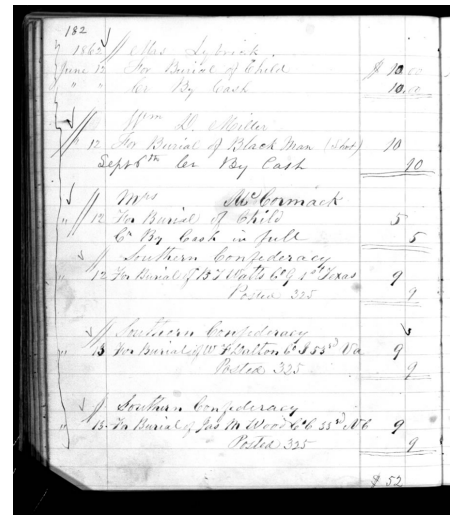 182
1862 // Mrs Lybrick
June 12 For Burial of Child $ 10 00
" " Cr By Cash 10.00
// Wm D. Miller
" 12 For Burial of Black Man (Shot) 10
Sept 6th Cr By Cash 10
// Mrs McCormack
" 12 For Burial of Child 5
Cr By Cash in full 5
// Southern Confederacy
" 12 For Burial of B T Watts Co G 1st Texas 9
Posted 325 9
// Southern Confederacy
" 13 For Burial of W F Dalton Co I 53rd Va 9
Posted 325 9
// Southern Confederacy
" 13 For Burial of Jas M Wood Co C 55th N C 9
Posted 325 9
$ 52